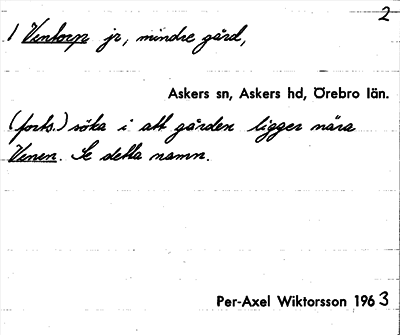 2
1 Ventorp jr, mindre gård,
Askers sn, Askers hd, Örebro län.
(forts.) söka i att gården ligger nära
Venen. Se detta namn.
Per-Axel Wiktorsson 1963